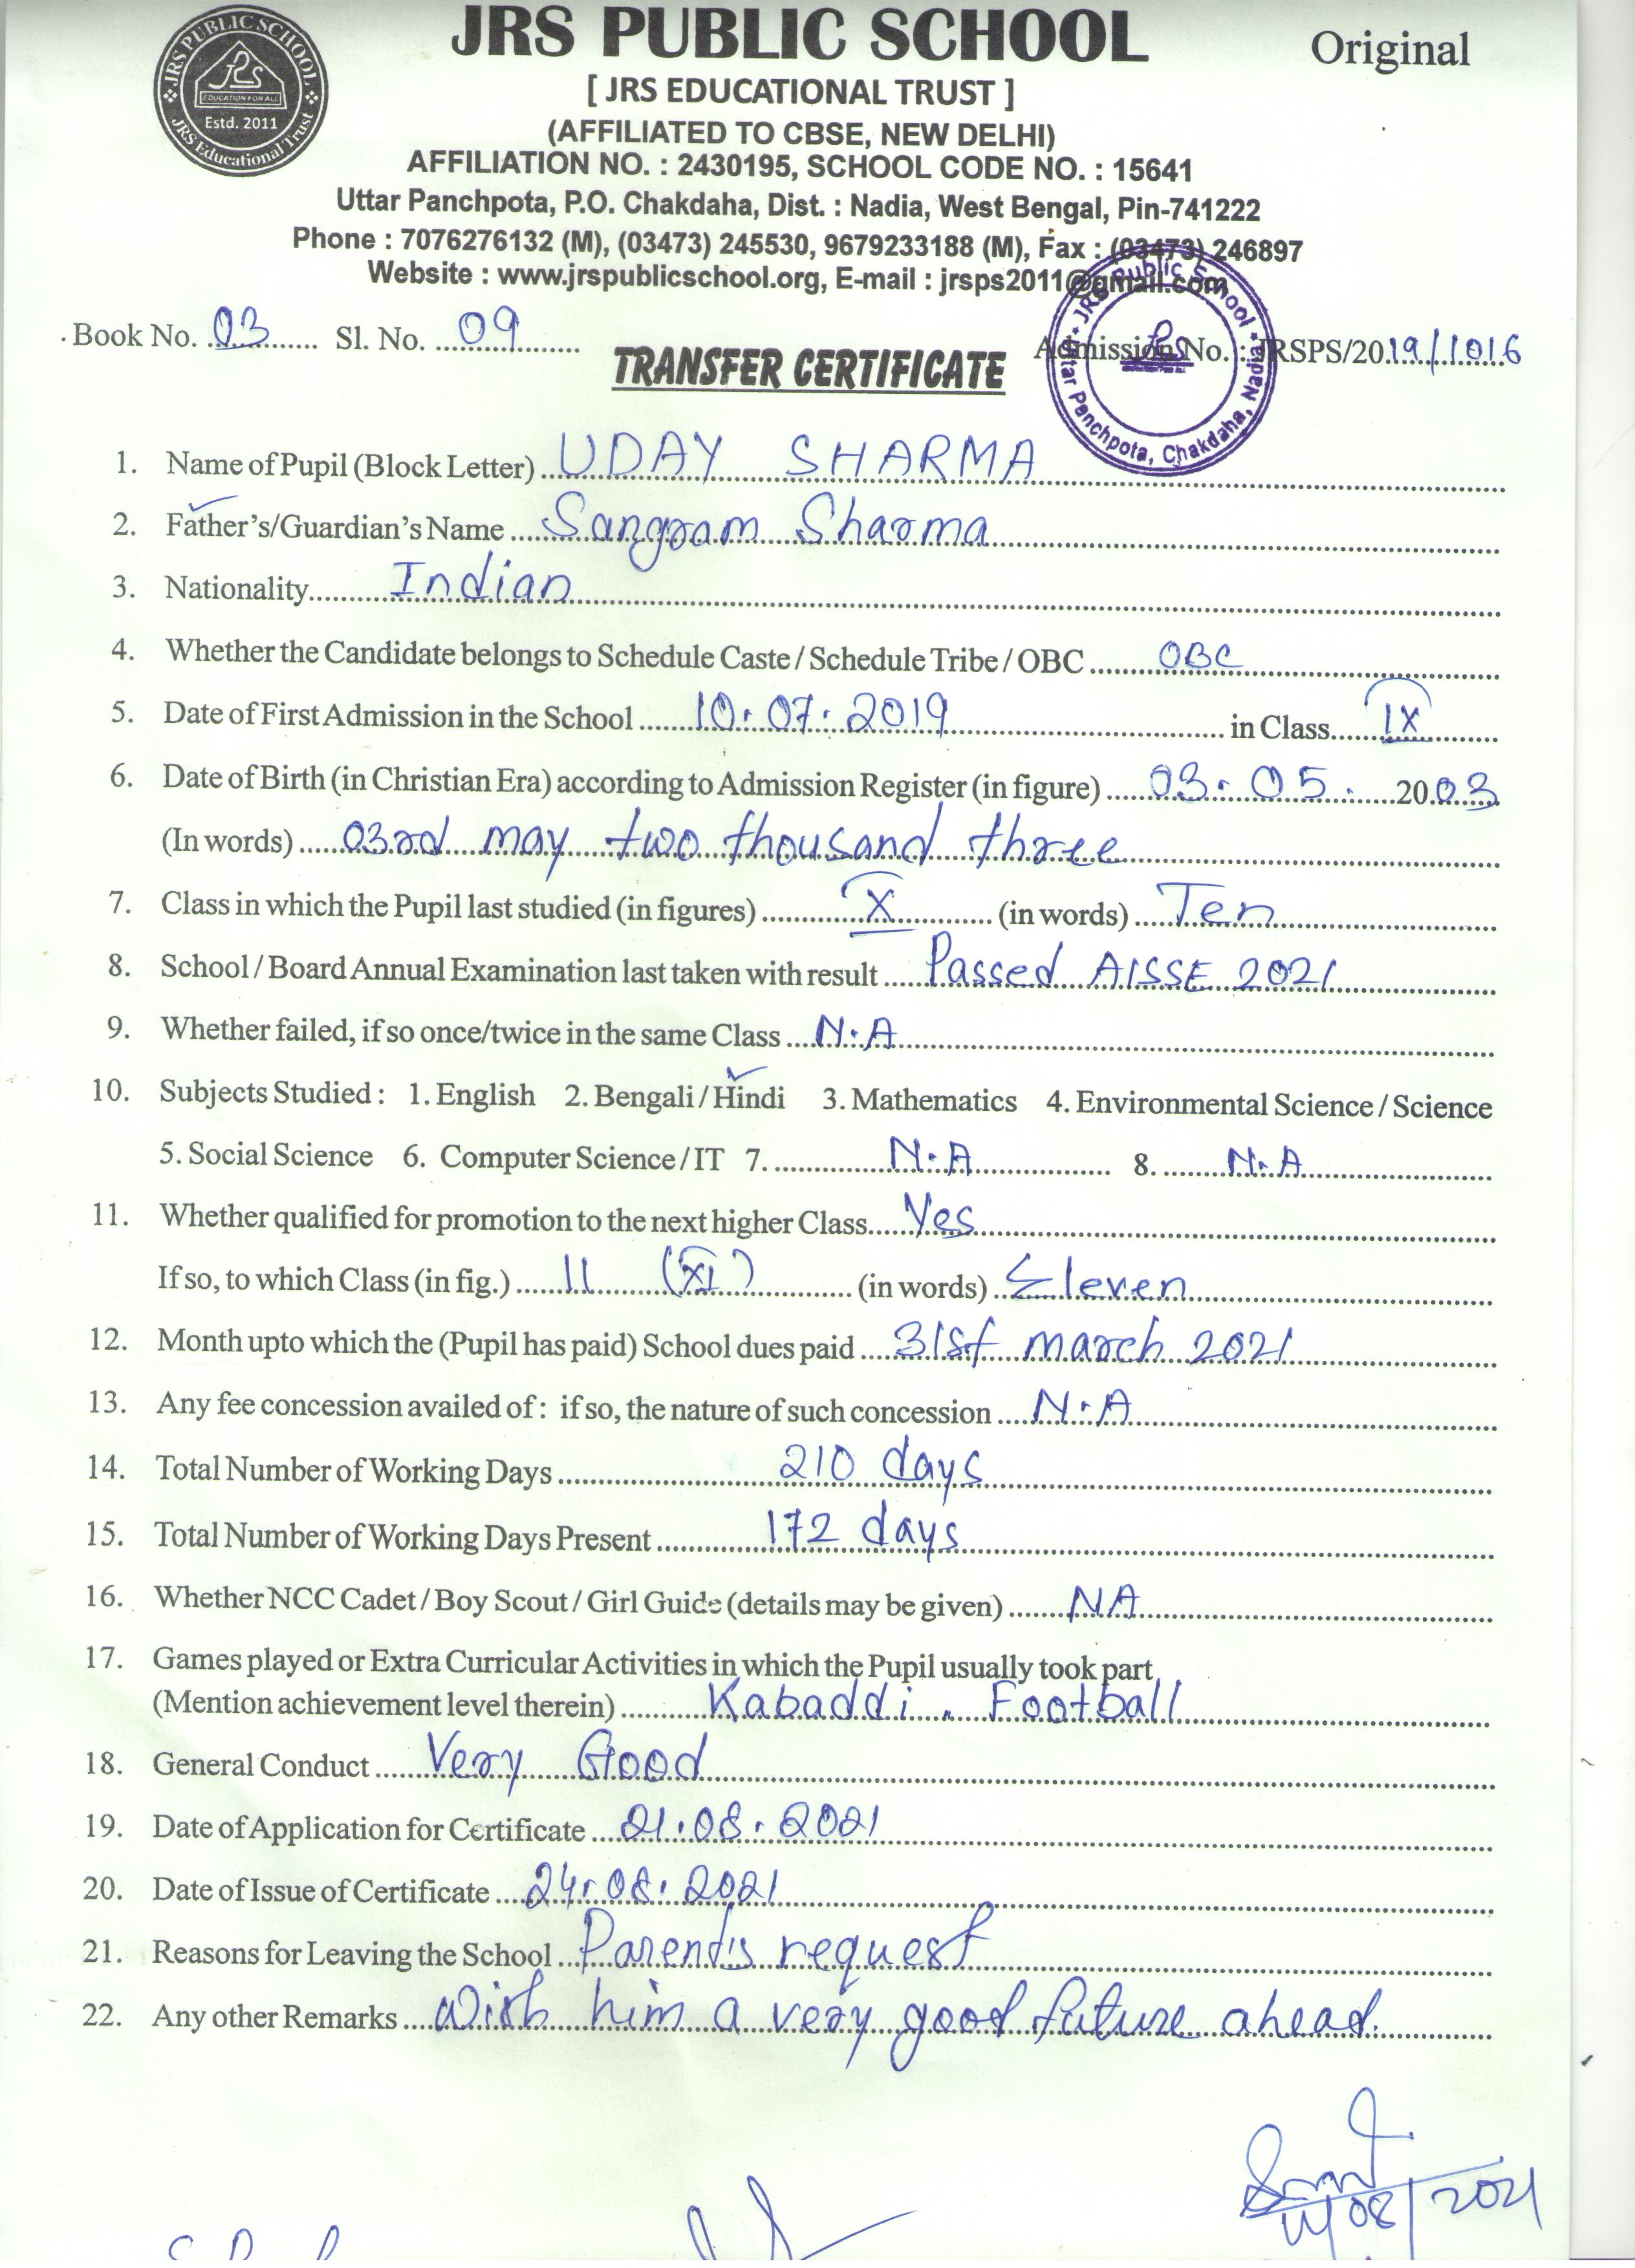 JRS PUBLIC SCHOOL
Original
[ JRS EDUCATIONAL TRUST ]
(AFFILIATED TO CBSE, NEW DELHI)
AFFILIATION NO. : 2430195, SCHOOL CODE NO. : 15641
Uttar Panchpota, P.O. Chakdaha, Dist. : Nadia, West Bengal, Pin-741222
Phone : 7076276132 (M), (03473) 245530, 9679233188 (M), Fax : (03473) 246897
Website : www.jrspublicschool.org, E-mail : jrsps2011@gmail.com
JRS PUBLIC SCHOOL
JRS
EDUCATION FOR ALL
Estd. 2011
JRS Educational Trust
JRS Public School
Uttar Panchpota, Chakdaha, Nadia
Book No. 03 Sl. No. 09
Admission No. : JRSPS/2019/1016
TRANSFER CERTIFICATE
1. Name of Pupil (Block Letter) UDAY SHARMA
2. Father's/Guardian's Name Sangram Sharma
3. Nationality Indian
4. Whether the Candidate belongs to Schedule Caste / Schedule Tribe / OBC OBC
5. Date of First Admission in the School 10.07.2019 in Class IX
6. Date of Birth (in Christian Era) according to Admission Register (in figure) 03.05.2003
(In words) 03rd may two thousand three
7. Class in which the Pupil last studied (in figures) X (in words) Ten
8. School / Board Annual Examination last taken with result Passed AISSE 2021
9. Whether failed, if so once/twice in the same Class N.A
10. Subjects Studied : 1. English 2. Bengali / Hindi 3. Mathematics 4. Environmental Science / Science
5. Social Science 6. Computer Science / IT 7. N.A 8. N.A
11. Whether qualified for promotion to the next higher Class Yes
If so, to which Class (in fig.) 11 (XI) (in words) Eleven
12. Month upto which the (Pupil has paid) School dues paid 31st march 2021
13. Any fee concession availed of : if so, the nature of such concession N.A
14. Total Number of Working Days 210 days
15. Total Number of Working Days Present 172 days
16. Whether NCC Cadet / Boy Scout / Girl Guide (details may be given) NA
17. Games played or Extra Curricular Activities in which the Pupil usually took part
(Mention achievement level therein) Kabaddi, Football
18. General Conduct Very Good
19. Date of Application for Certificate 21.08.2021
20. Date of Issue of Certificate 24.08.2021
21. Reasons for Leaving the School Parent's request
22. Any other Remarks Wish him a very good future ahead.